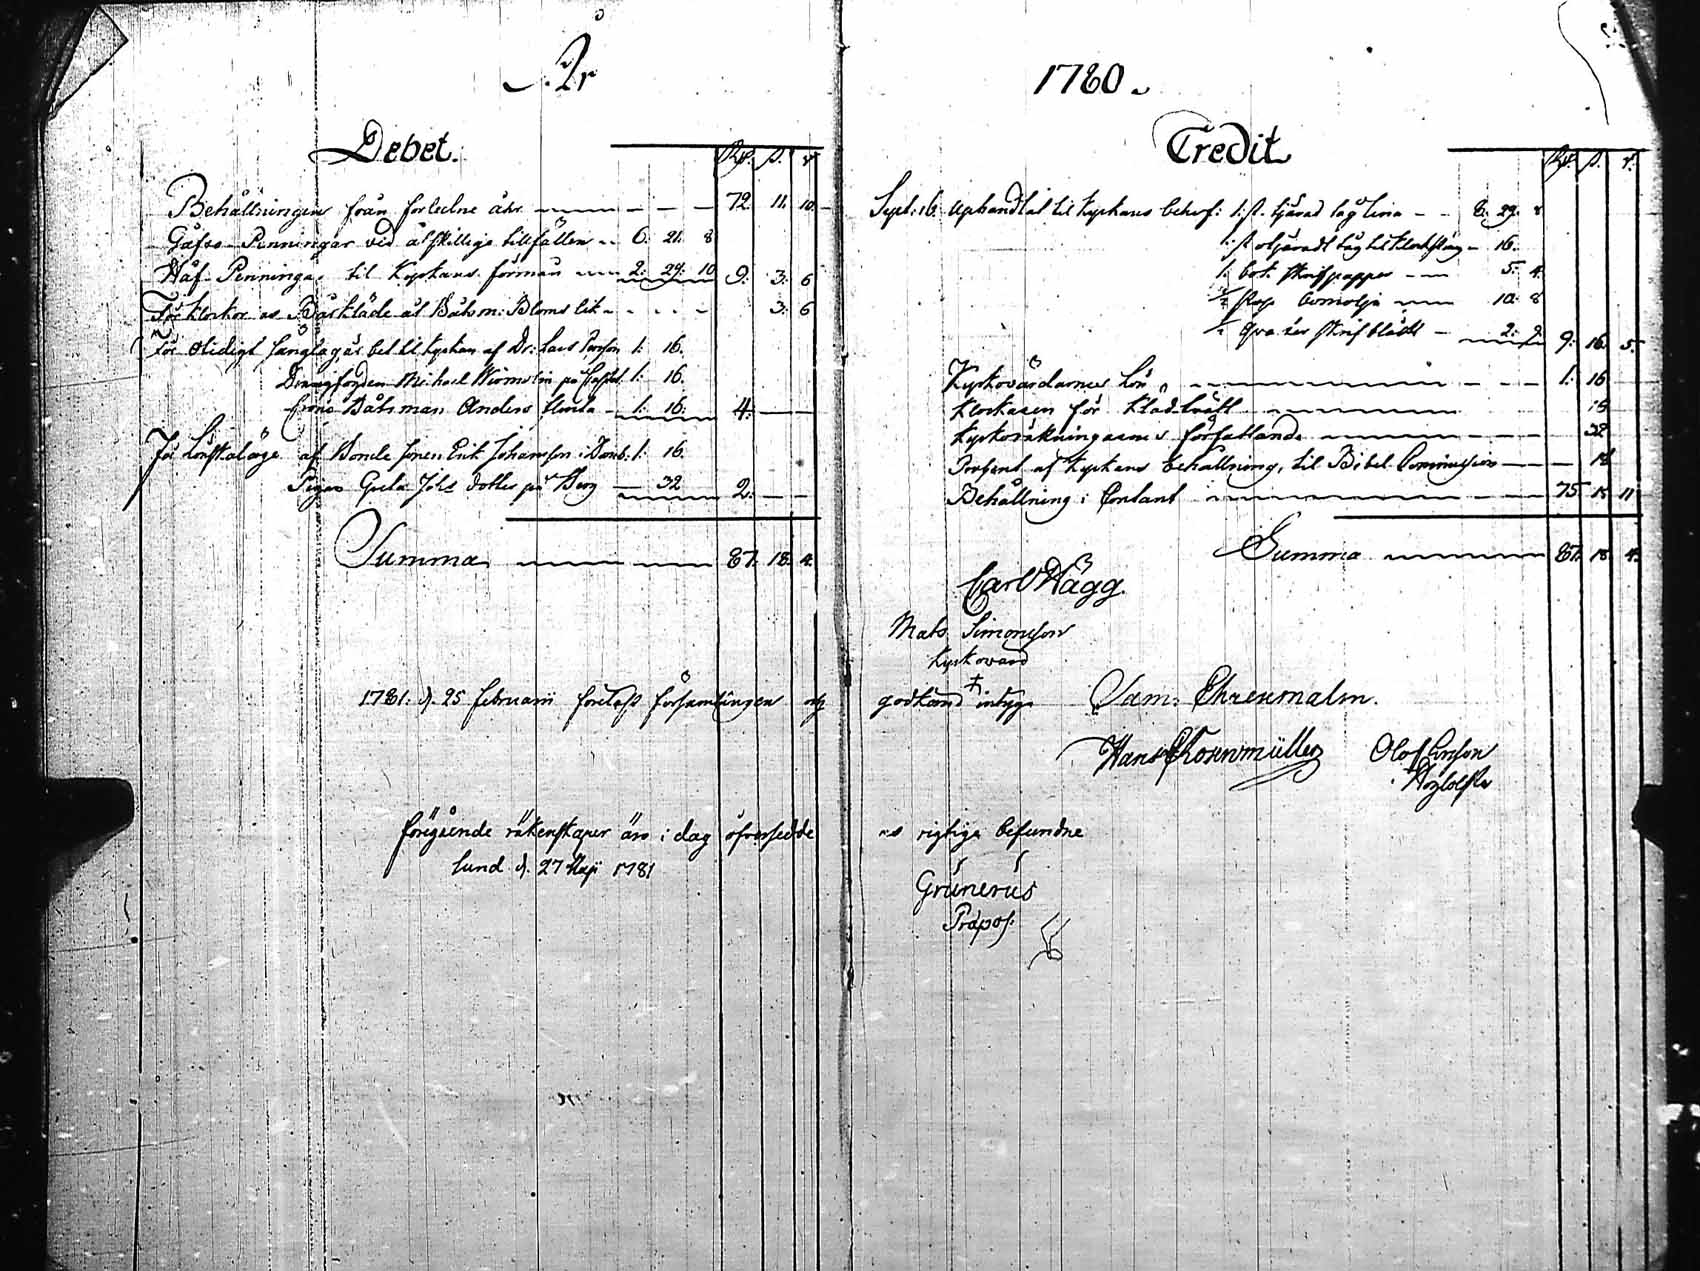 År
Debet.
Rd. s. r
Behållningen från forledne åhr 72. 11. 10
Gåfvo-Penningar vid åtskillige tillfällen 6. 21. 8
Håf Penningar til Kyrkans förmån 2. 29. 10 9. 3. 6
För klockor oc Bårkläde åt Båtsm: Bloms lik 3. 6
För otidigt sänglag är bet. til Kyrkan af Dr: Lars Persson 1. 16.
Drängfogden Michael 1. 16.
Crono Båtsman Anders 1. 16. 4.
För Lönskaläge af Bonde sonen Erik Johansson i 1. 16.
Pigan Greta Johs dotter på Berg 32 2.
Summa 87. 18. 4.
1780.
Credit
Rd. s. r.
Sept: 16. Uphandlat til Kyrkans behof: 1. st. tjärad tåg lina 8. 29. 8
1. st otjäradt tåg til 16.
1. bok skrifpapper 5. 4.
1/2 stop bomolja 10. 8
skrif bläck 2. 9. 16. 5.
Kyrkovärdarnes Lön 1. 16
Klockaren för Klädtvätt 16
Kyrkoräkningarnes författande 32
Procent af Kyrkans behållning, til Bibel Commission 18
Behållning i Contant 75. 15 11
Summa 87. 18. 4.
Carl Hägg.
Mats Simonsson
Kyrkovärd
1781. d. 25 Februarii förelast församlingen och godkänd intyga Sam: Ehrenmalm.
Hans Rosenmüller Olof
föregående räkenskaper äro i dag öfversedde oc rigtiga befundne
Lund d. 27 Maji 1781
Grúnerús
Præpos: